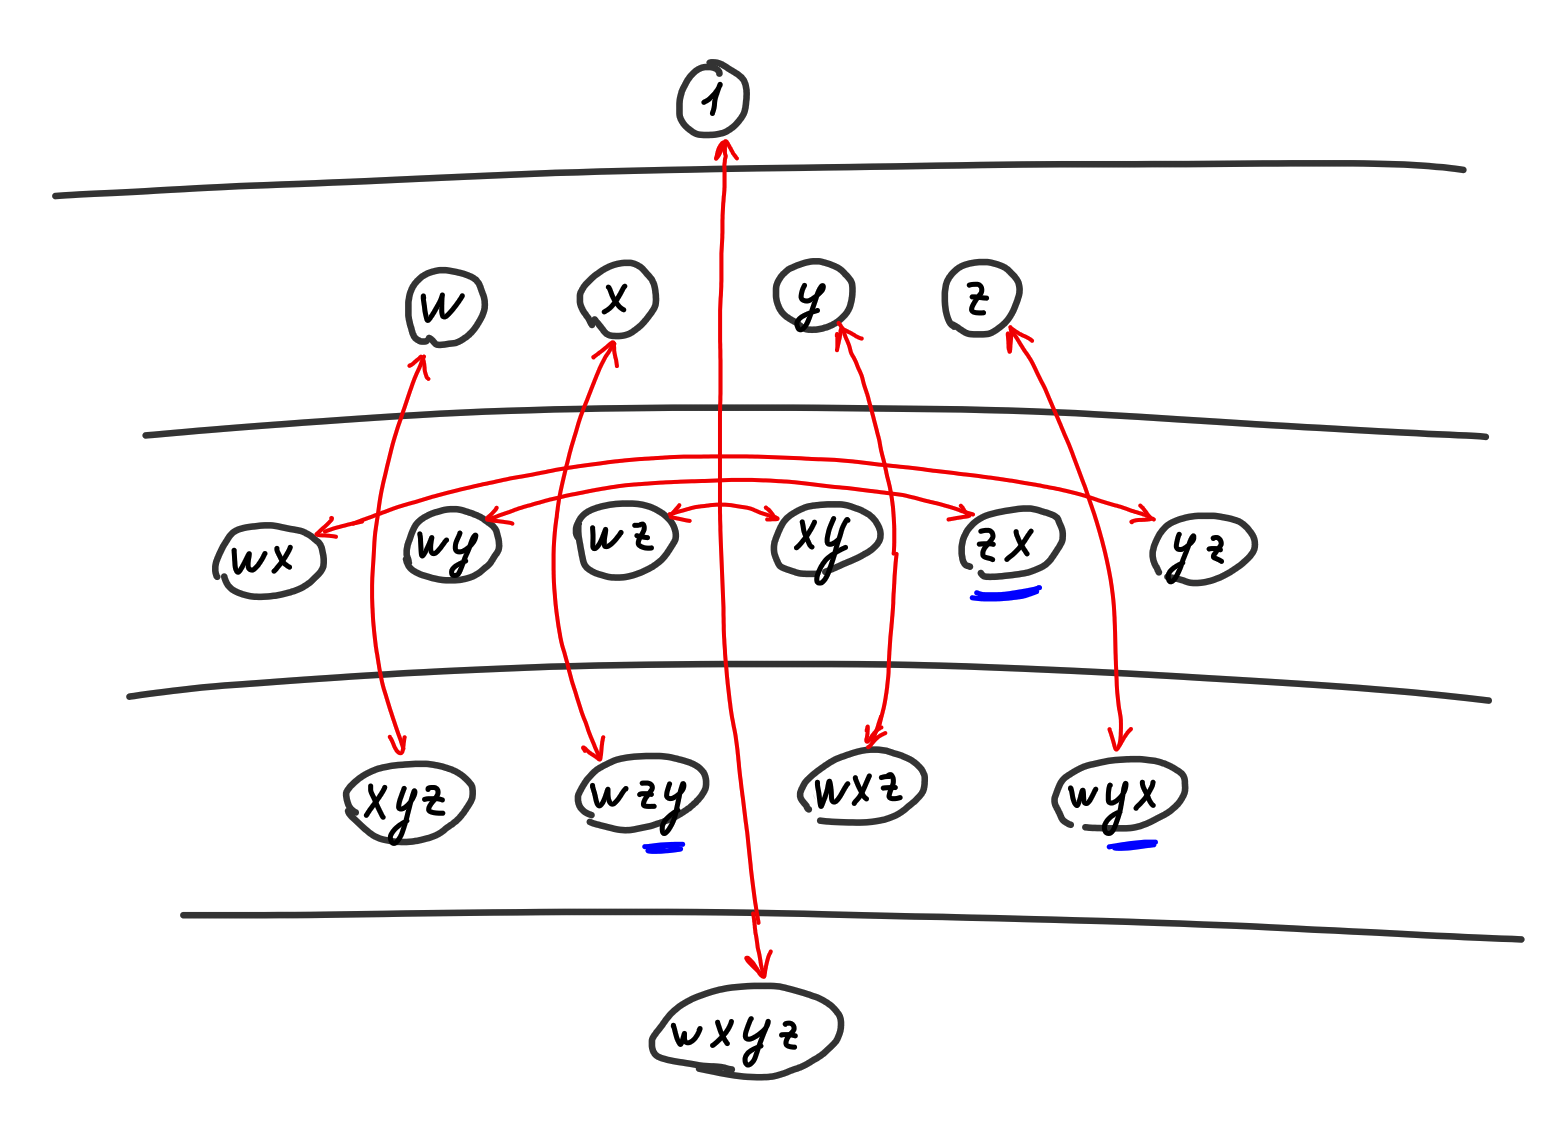 1
w x y z
wx wy wz xy zx yz
xyz wzy wxz wyx
wxyz